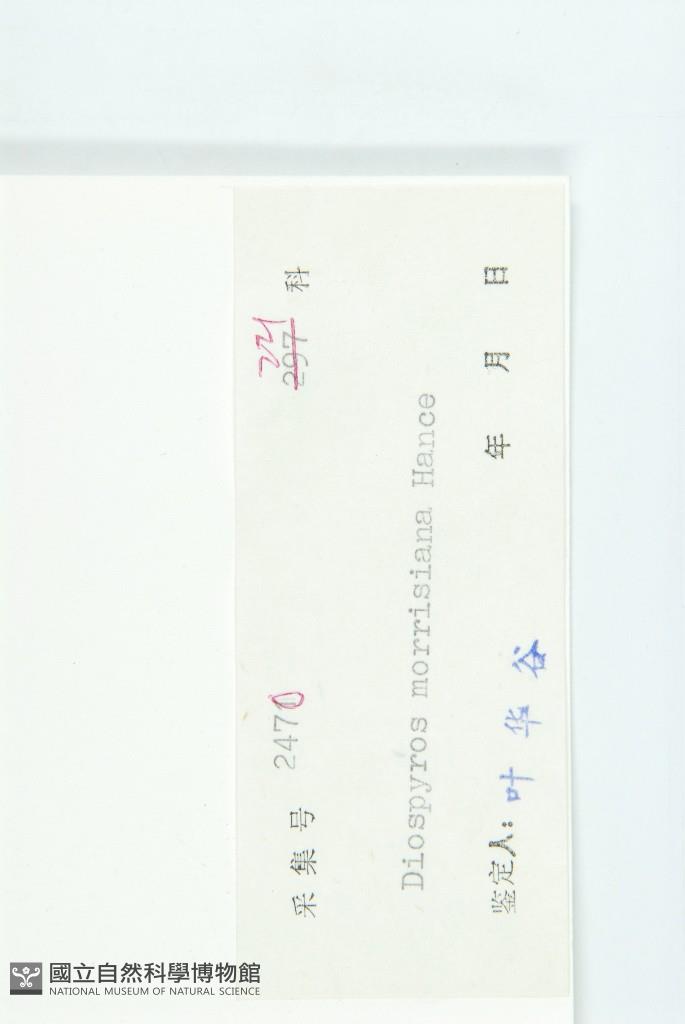 采集号 2470 221 297 科
Diospyros morrisiana Hance
鉴定人: 叶华谷 年 月 日
國立自然科學博物館
NATIONAL MUSEUM OF NATURAL SCIENCE